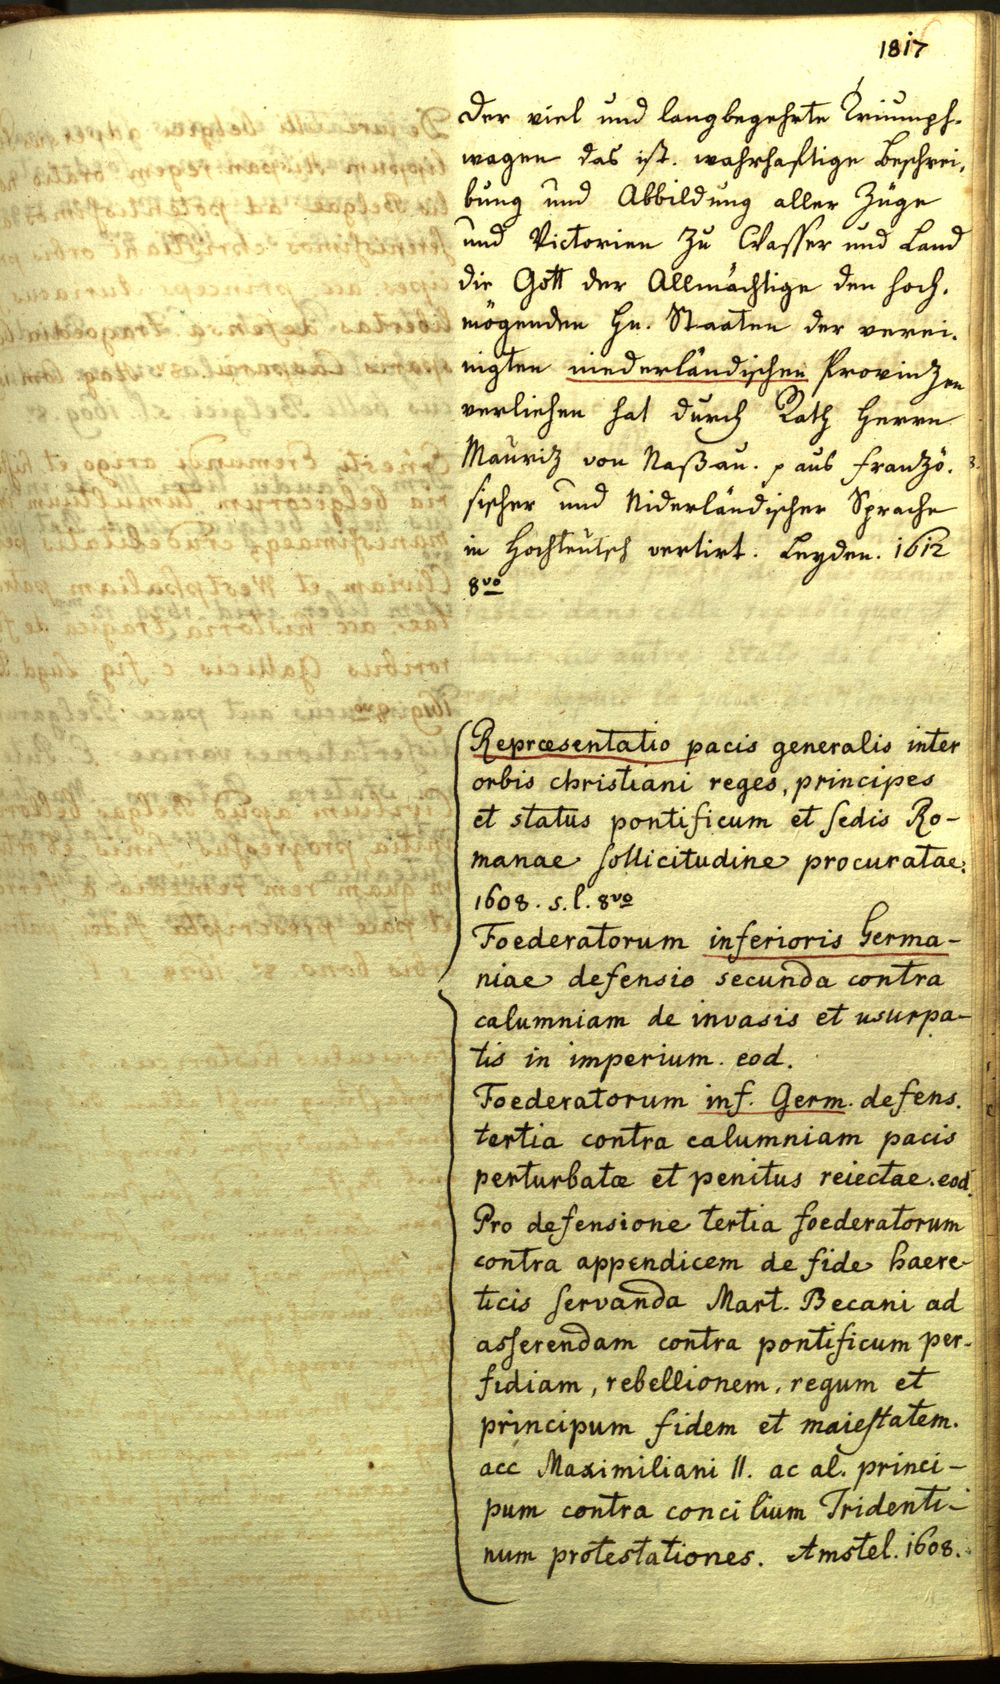 1817
der viel und langbegehrte Triumph-
wagen das ist. wahrhaftige Beschrei-
bung und Abbildung aller Züge
und Victorien zu Wasser und Land
die Gott der Allmächtige den hoch-
mögenden Hn. Staaten der verei-
nigten niederländischen Provinzen
verliehen hat durch Rath Herrn
Mauriz von Naßau. p aus Franzö-
sischer und Niderländischer Sprache
in Hochteutsch vertirt. Leyden. 1612
8vo
Repræsentatio pacis generalis inter
orbis christiani reges, principes
et status pontificum et sedis Ro-
manae sollicitudine procuratae.
1608. s. l. 8vo
Foederatorum inferioris Germa-
niae defensio secunda contra
calumniam de invasis et usurpa-
tis in imperium. eod.
Foederatorum inf. Germ. defens.
tertia contra calumniam pacis
perturbatæ et penitus reiectae. eod.
Pro defensione tertia foederatorum
contra appendicem de fide haere-
ticis servanda Mart. Becani ad
asserendam contra pontificum per-
fidiam, rebellionem, regum et
principum fidem et maiestatem.
acc Maximiliani II. ac al. princi-
pum contra concilium Tridenti-
num protestationes. Amstel. 1608.